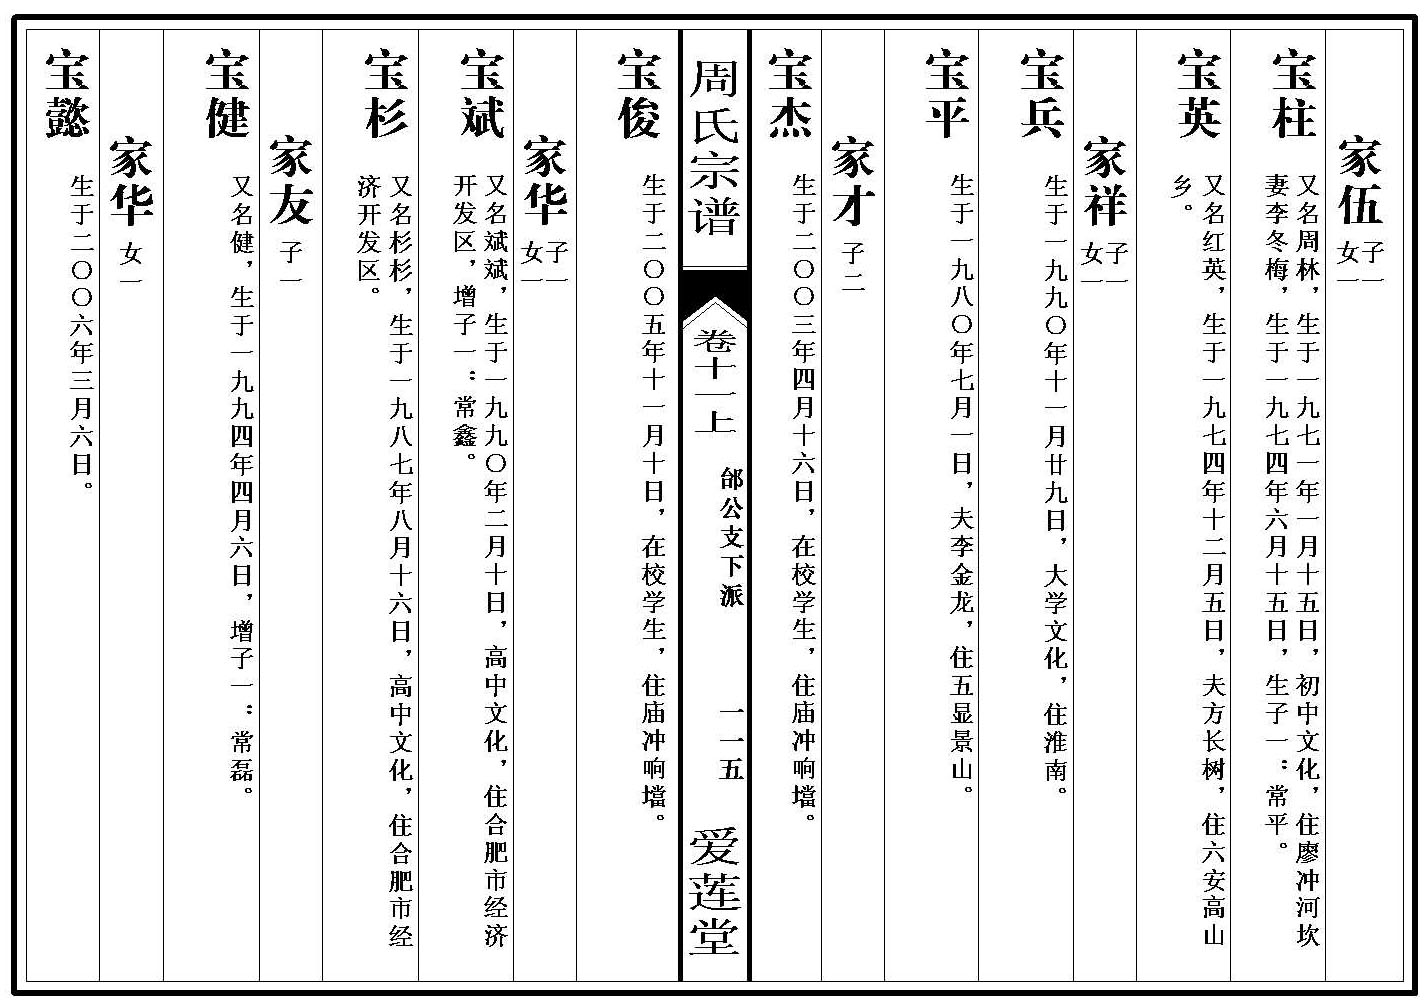 家伍
子一
女一
宝柱
又名周林，生于一九七一年一月十五日，初中文化，住廖冲河坎
妻李冬梅，生于一九七四年六月十五日，生子一：常平。
宝英
又名红英，生于一九七四年十二月五日，夫方长树，住六安高山
乡。
家祥
子一
女一
宝兵
生于一九九〇年十一月廿九日，大学文化，住淮南。
宝平
生于一九八〇年七月一日，夫李金龙，住五显景山。
家才
子二
宝杰
生于二〇〇三年四月十六日，在校学生，住庙冲响壋。
周氏宗谱
卷十一上
邰公支下派
一一五
爱莲堂
宝俊
生于二〇〇五年十一月十日，在校学生，住庙冲响壋。
家华
子一
女一
宝斌
又名斌斌，生于一九九〇年二月十日，高中文化，住合肥市经济
开发区，增子一：常鑫。
宝杉
又名杉杉，生于一九八七年八月十六日，高中文化，住合肥市经
济开发区。
家友
子一
宝健
又名健，生于一九九四年四月六日，增子一：常磊。
家华
女一
宝懿
生于二〇〇六年三月六日。